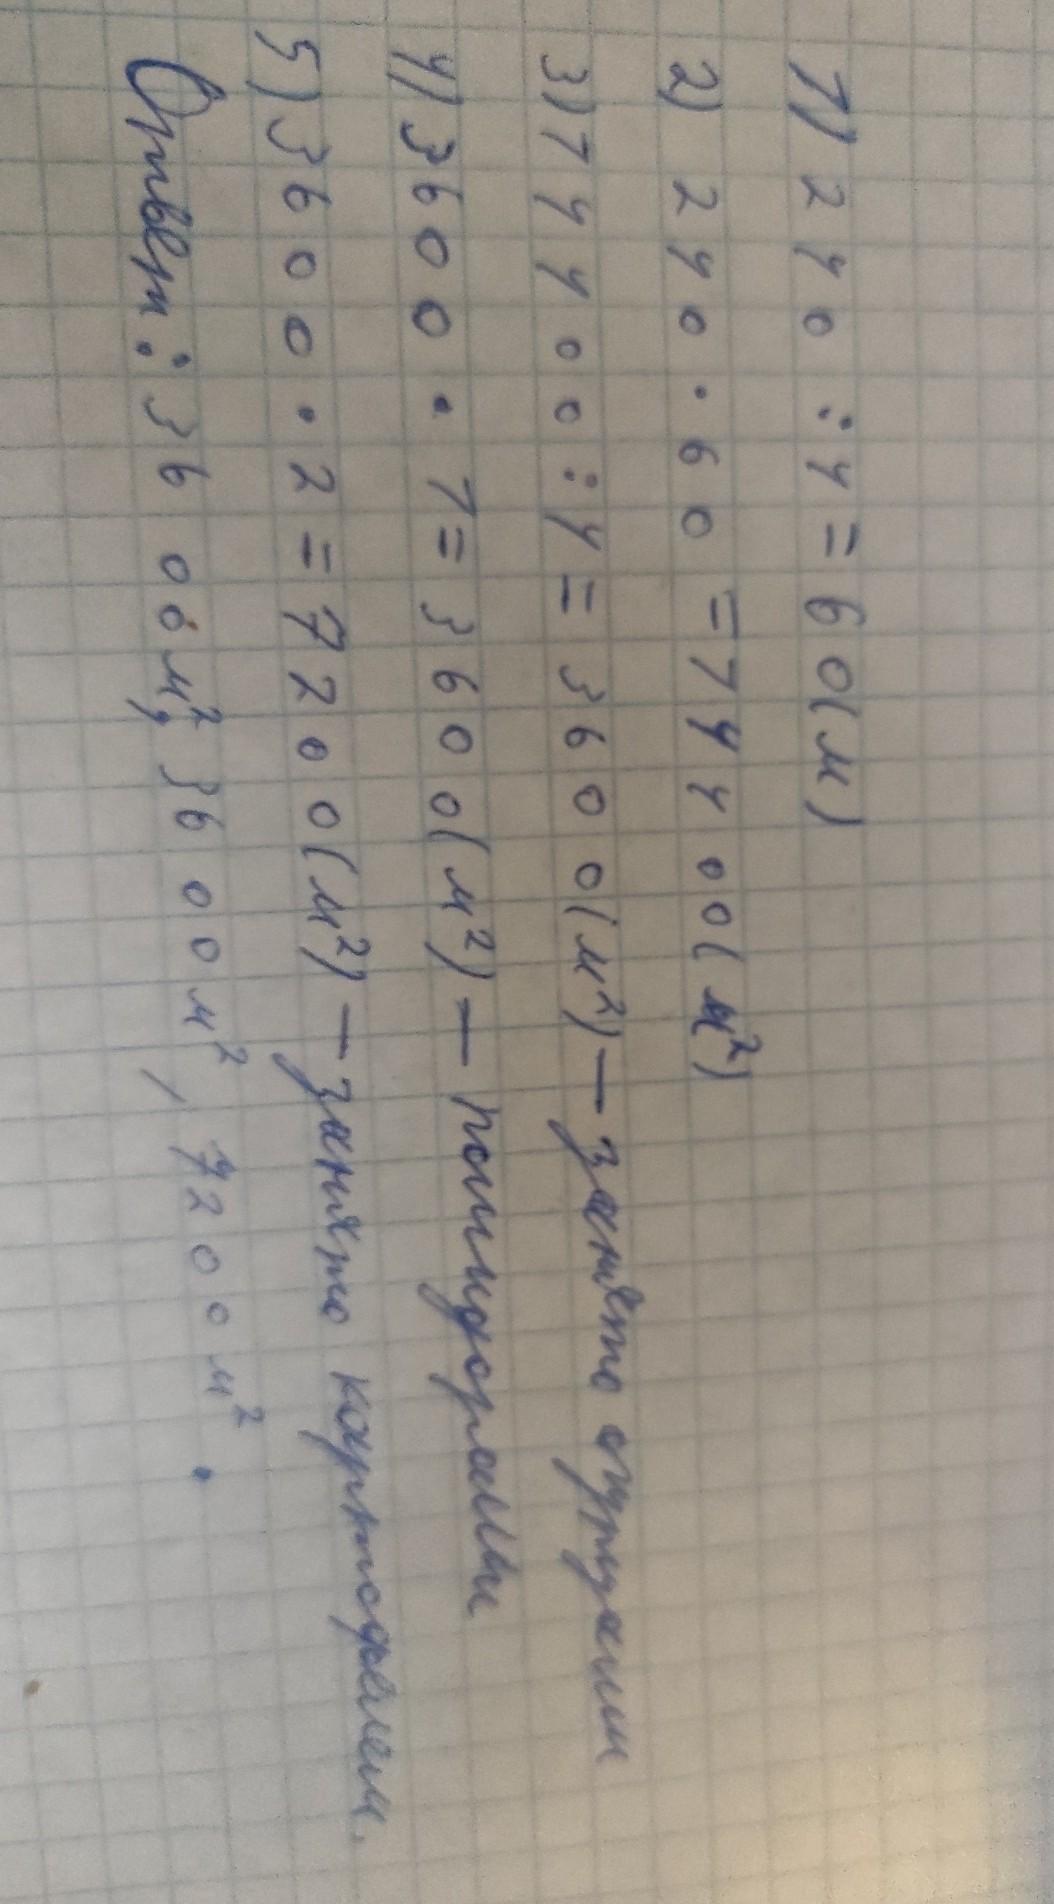 1) 240 : 4 = 60 (м)
2) 240 · 60 = 14400 (м²)
3) 14400 : 4 = 3600 (м²) — занято огурцами
4) 3600 · 1 = 3600 (м²) — помидорами
5) 3600 · 2 = 7200 (м²) — занято картофелем.
Ответ: 3600 м², 3600 м², 7200 м².